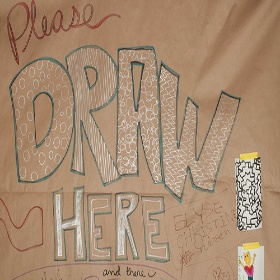 Please
DRAW
HERE
and there